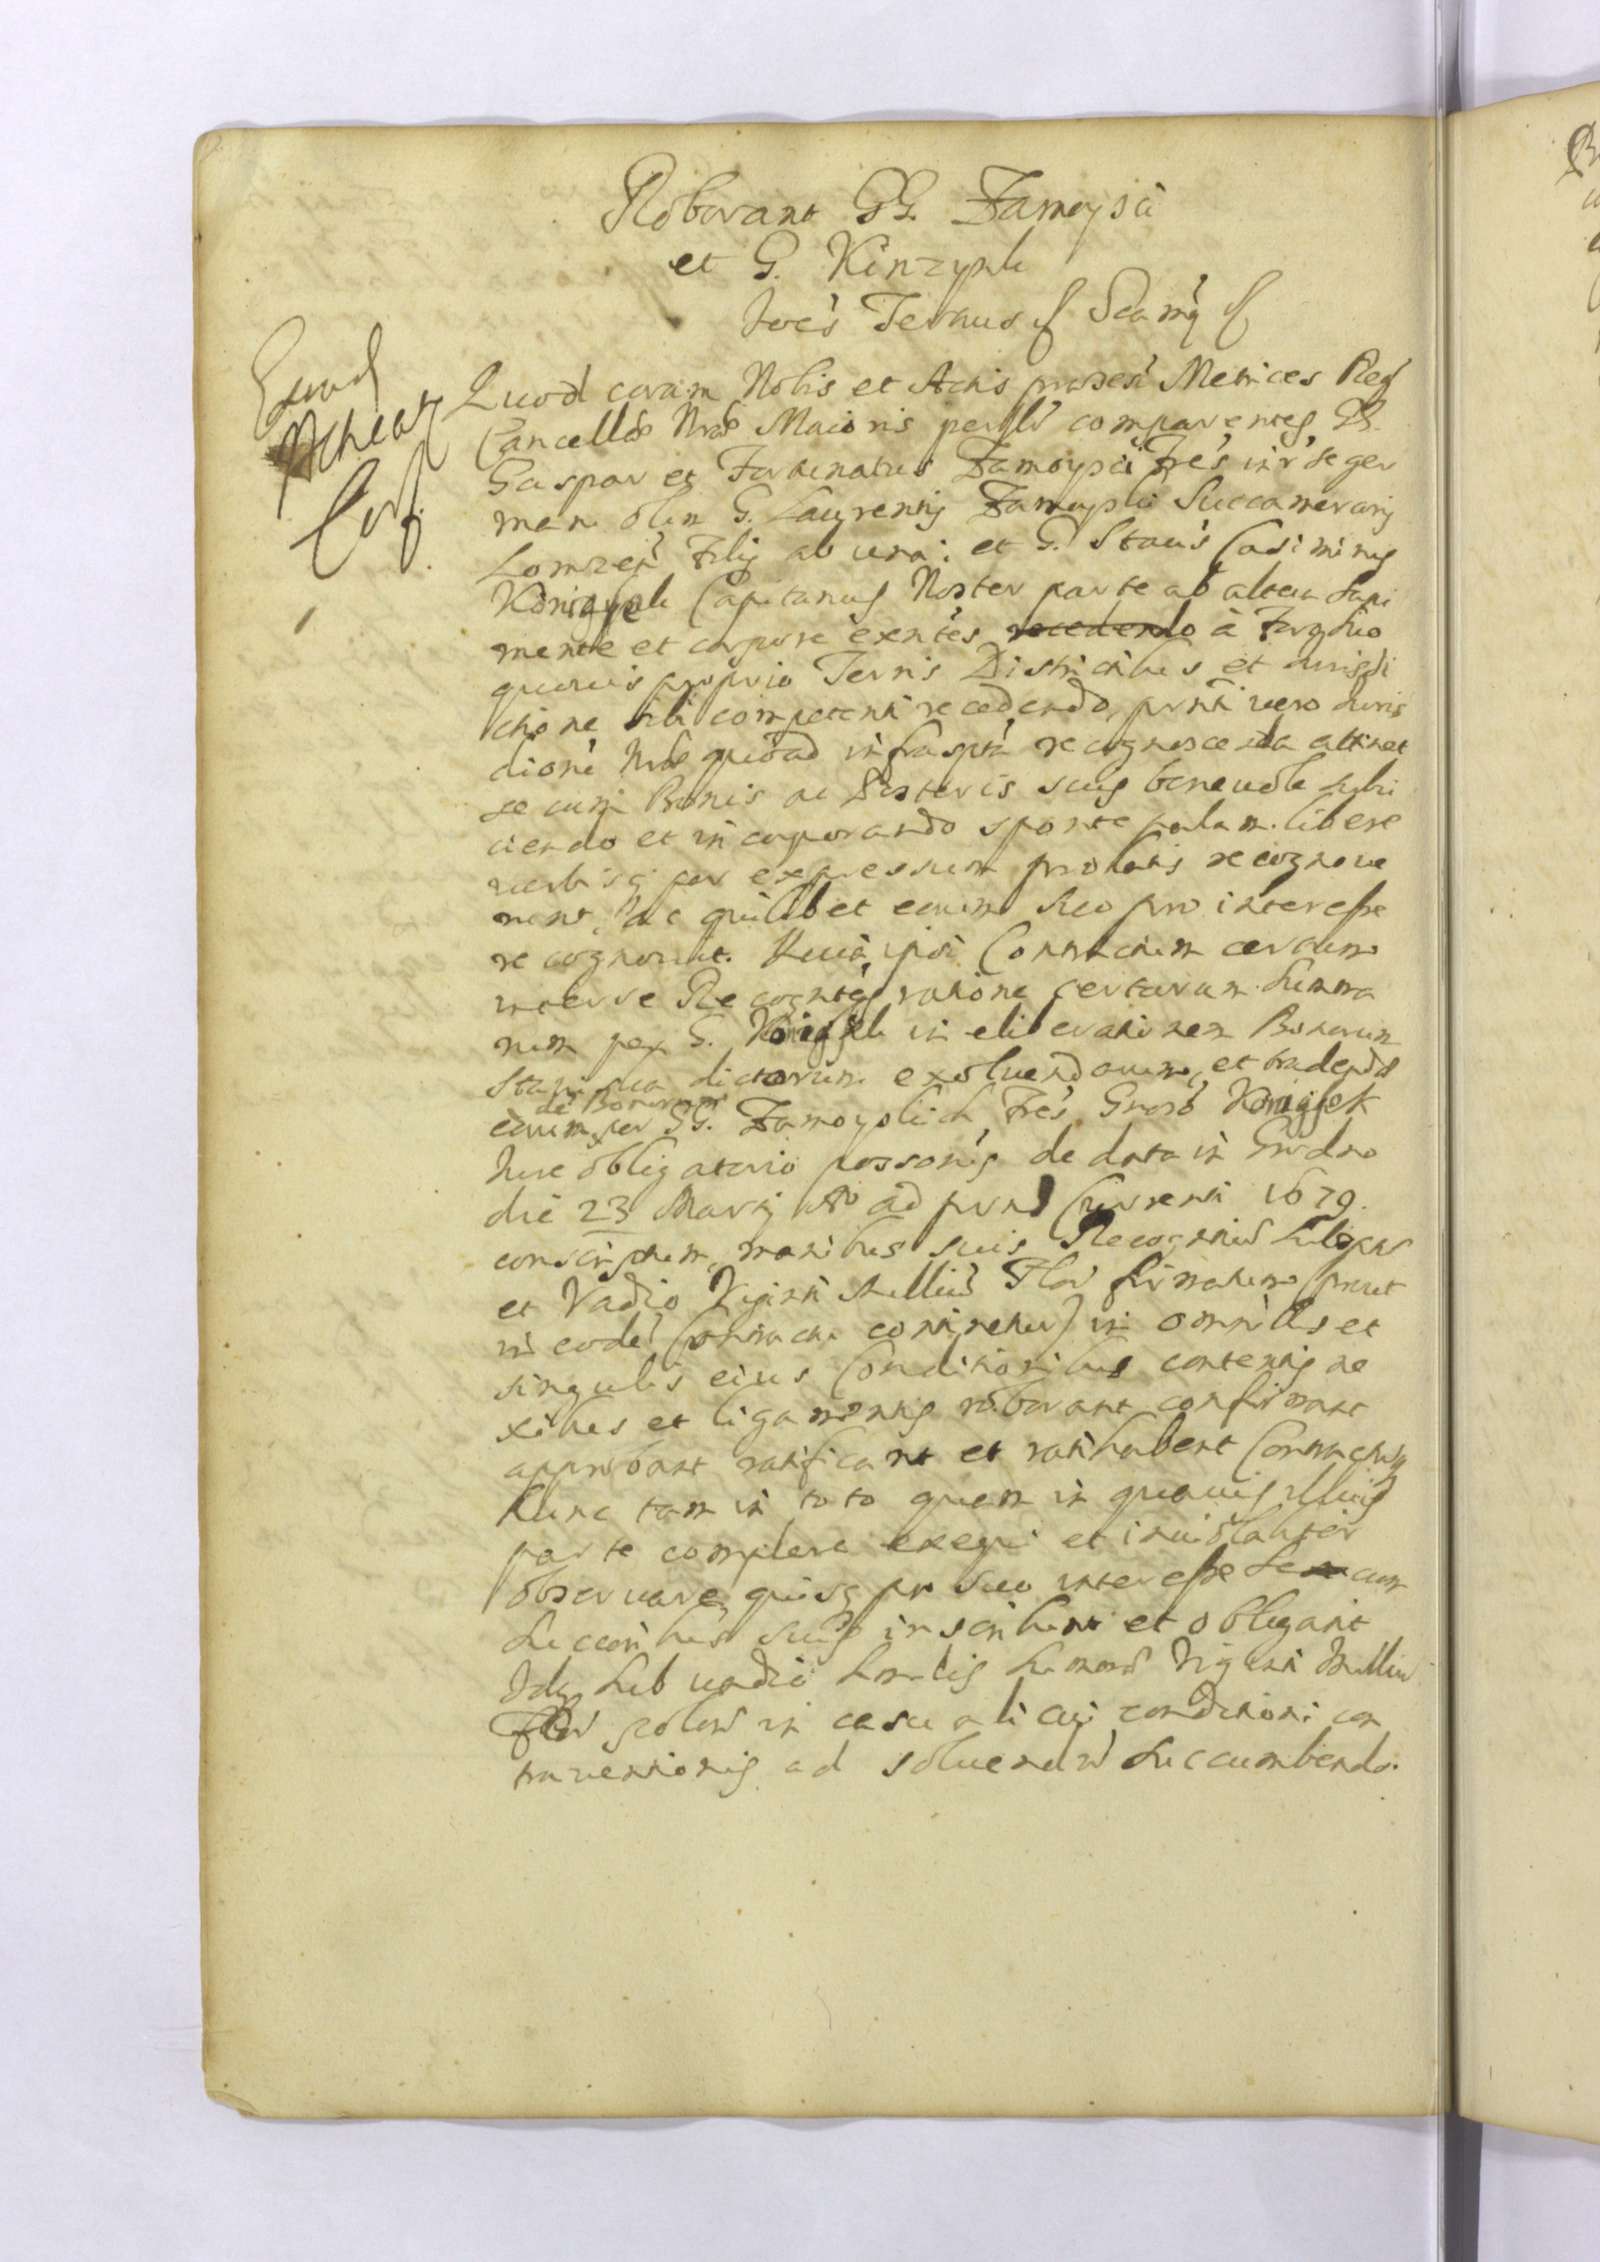 Roborant GG. Zamoysci
et G. Kinzynk
Joēs Tertius etc Sca mq etc
Quod coram Nobis et Actis praesen Metrices Regni
Cancellae Nrae Maioris perslr comparentes GG.
Gaspar et Fortunatus Zamoyscii Fres intr se ger
mani olim G. Laurentij Zamoyski Succamerarij
Lomzen Filij ab una: et G. Staus Casimirus
Konigsek Capitaneus Noster parte ab altera sani
mente et corpore exntes recedendo à Terghio
quovis proprio Terris Districtibus et Jurisdi
ctione sibi competenti recedendo, prnti vero Juris
dioni Nrae quoad infraspta recognoscenda attinet
se cum Bonis ac Posteris suis benevole subi
ciendo et incorporando sponte palam libere
verbisq per expressum prolatis recognove
runt, ac quilibet eorum suo pro interesse
recognovit. Quia ipsi Contractum certum
inter se Recogntes ratione certarum Summa
rum per G. Konigsek in eliberationem Bonorum
dictorum exolvendarum, et tradendor
eorum de Bonorum per GG. Zamoyskich Fres Groso Konigsek
Jure obligatorio possonis de data in Grodno
die 23 Martij Ao ad prns Currenti 1679.
conscriptum, manibus suis Recogntiu subscr
et Vadio Viginti Milliu Flor firmatum (prout
in eode Contractu continetur) in omnibus et
singulis eius Conditionibus contentis ne
xibus et ligamentis roborant confirmant
approbant ratificant et ratihabent Contractumq
hunc tam in toto quam in quavis illius
parte complere exequi et inviolabiter
observare quisq pro suo interesse se cum
Successoribus suis inscribunt et obligant
Idq sub vadio similis Summae Viginti Milliu
Flor polon in casu alicuj conditioni con
traventionis ad solvendu succumbendo.